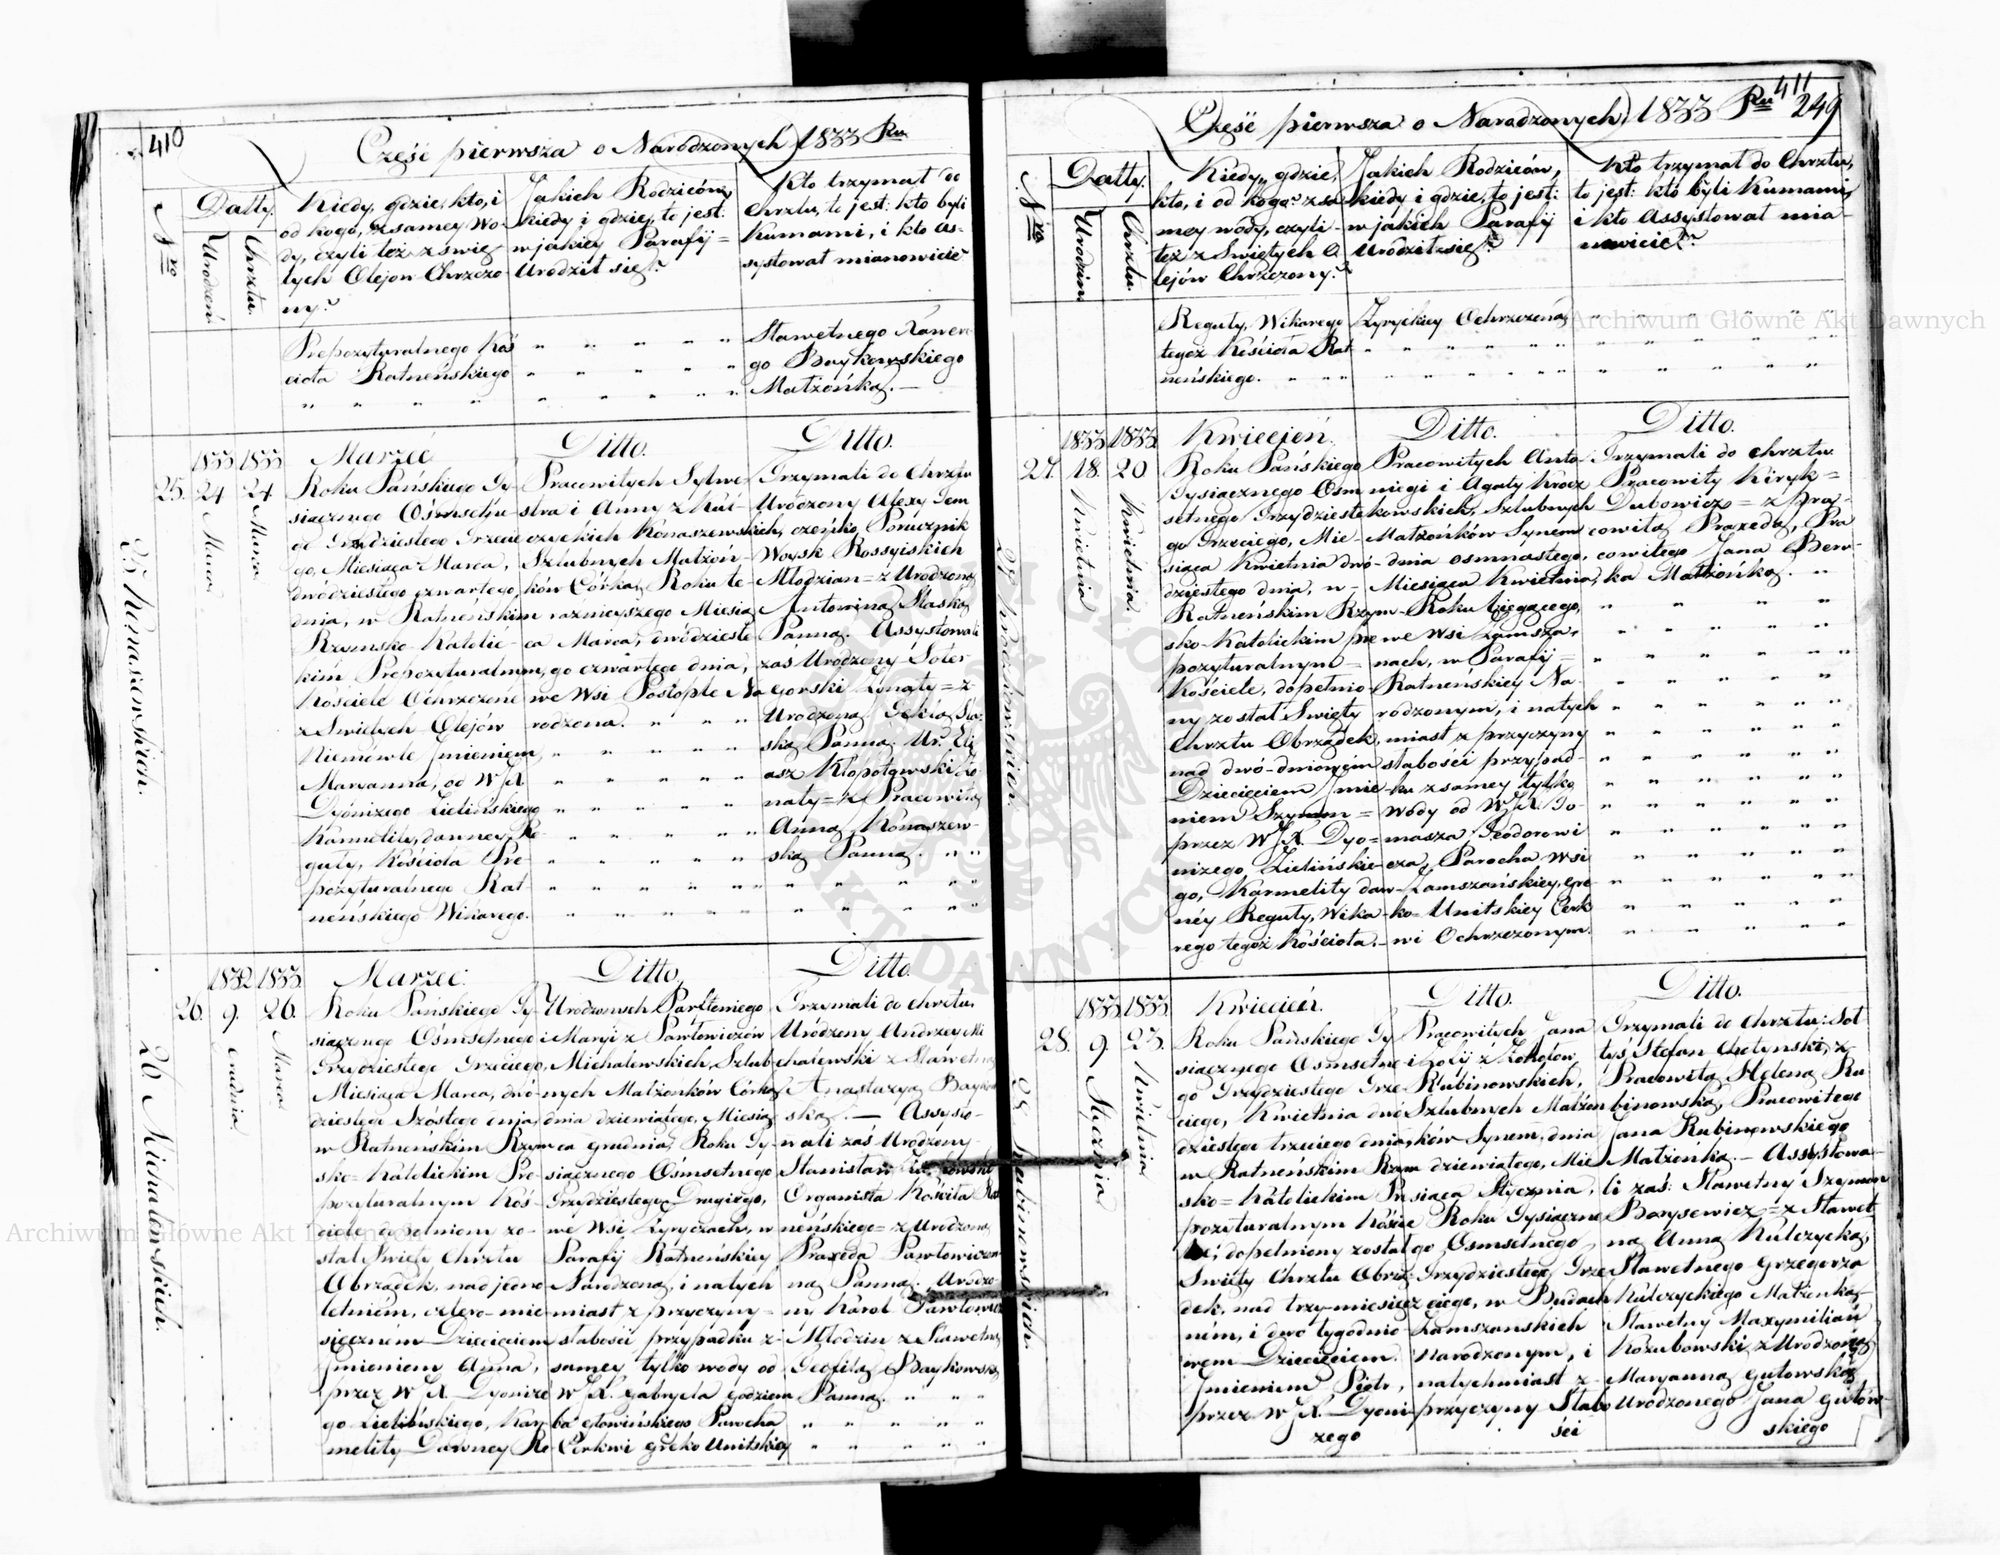 410
Część pierwsza o Narodzonych 1833 Ru
Nro
Datty.
Urodzeń
Chrztu.
Kiedy, gdzie, kto, i
od kogo, z samey wo-
dy, czyli też z Świę-
tych Olejow Chrzczo-
ny?
Jakich Rodziców,
kiedy i gdzie, to jest:
w jakiey Parafij =
Urodził się?
Kto trzymał do
Chrztu, to jest: kto byli
Kumami, i kto as-
systował mianowicie?
Prepozyturalnego Koś
cioła Ratneńskiego
Sławetnego Xawer
go Baykowskiego
Małżonką. —
25. Konaszewskich.
25.
1833
24
Marca
1833
24
Marca
Marzec
Roku Pańskiego Ty-
siącznego Ośmsetne-
go Trzydziestego Trzecie
go, Miesiąca Marca,
dwódziestego czwartego
dnia, w Ratneńskim
Rzymsko-Katolic-
kim Prepozyturalnym
Kościele Ochrzczone
z Świętych Olejów
Niemówle Jmieniem
Maryanna, od W JX
Dyonizego Zielińskiego
Karmelity, dawney Re
guły, Kościoła Pre
pozyturalnego Rat-
neńskiego Wikarego.
Ditto.
Pracowitych Sylwe-
stra i Anny z Kul-
czyckich Konaszewskich,
Szlubnych Małżon-
ków Córka, Roku te-
raznieyszego Miesią
ca Marca, dwódzieste
go czwartego dnia,
we Wsi Postople Na
rodzona.
Ditto.
Trzymali do Chrztu
Urodzony Alexy Dem
czeńko, Porucznik
Woysk Rossyiskich
Młodzian = z Urodzoną
Antoniną Słaską
Panną. Assystowali
zaś Urodzony Soter
Gorski Żonaty = z
Urodzoną Teklą Sła-
ską Panną. Ur. Eli
asz Kłopotowski Żo
naty = z Pracowitą
Anną Konaszew-
ską Panną.
26 Michalewskich.
26.
1832
9.
Grudnia
1833.
26.
Marca
Marzec.
Roku Pańskiego Ty-
siącznego Ośmsetnego
Trzydziestego Trzeciego,
Miesiąca Marca, dwó-
dziestego Szóstego dnia,
w Ratneńskim Rzym
sko-Katolickim Pre-
pozyturalnym Koś-
ciele dopełniony zo-
stał Święty Chrztu
Obrządek, nad jedno
letniem, cztero-mie
sięcznem Dziecięciem
Jmieniem Anna,
przez W JX Dyonize
go Zielińskiego, Kar
melity Dawney Re-
Ditto.
Urodzonych Parfteniego
i Maryi z Pawłowiczów
Michalewskich, Szlub
nych Małżonków Córka,
dnia dziewiątego, Miesią
ca grudnia, Roku Ty-
siącznego Ośmsetnego
Trzydziestego Drugiego,
we Wsi Żyryczach, w
Parafij Ratneńskiey
Narodzona, i natych
miast z przyczyny =
słabości przypadku z
samey tylko wody od
W JX. Gabryela Godziem
bą głowińskiego Parocha
Cerkwi greko Unitskiey
Ditto.
Trzymali do chrztu,
Urodzony Andrzey Mi
chalewski z Sławetną
Anastazyą Baykow
ską. — Assysto-
wali zaś Urodzony
Stanisław
Organista Kościoła Ra
neńskiego = z Urodzoną
Praxedą Pawłowiczow
ną Panną. Urodzo-
ny Karol Pawłowicz
Młodzin z Sławetną
Teofilą Baykowską
Panną.
411
249
Część pierwsza o Narodzonych 1833 Ru
Nro
Datty.
Urodzin
Chrztu.
Kiedy, gdzie,
kto, i od kogo? z sa
mey wody, czyli-
też z Świętych O
lejów Chrzczony?
Jakich Rodziców,
kiedy i gdzie, to jest:
w jakich Parafij
Urodził się?
Kto trzymał do Chrztu,
to jest: kto byli Kumami,
i kto Assystował mia-
nowicie?
Reguły, Wikarego
tegoż Kościoła Rat
neńskiego.
Żyryckiey Ochrzczoną
27.
1833
18.
Kwietnia
1833.
20
Kwietnia.
Kwiecień.
Roku Pańskiego
Tysiącznego Ośm
setnego Trzydzieste
go Trzeciego, Mie-
siąca Kwietnia dwó-
dziestego dnia, w-
Ratneńskim Rzym-
sko-Katolickim pre
pozyturalnym =
Kościele, dopełnio-
ny został Święty
Chrztu Obrządek
nad dwó-dniowem
Dziecięciem Jmie-
niem Szymon =
przez W JX. Dyo=
nizego Zielińskie-
go, Karmelity daw-
néy Reguły, Wika-
rego tegoż Kościoła. -
Ditto.
Pracowitych Anto-
niegi i Agaty Krocz
kowskich, Szlubnych
Małżonków Synem
dnia osmnastego,
Miesiąca Kwietnia,
Roku biegącego,
we Wsi Zamsza-
nach, w Parafij =
Ratneńskiey Na-
rodzonym, i natych
miast z przyczyny
słabości przypad-
ku z samey tylko
Wody od W JX. To-
masza Teodorowi
cza, Parocha Wsi
Zamszańskiey, gre
ko-Unitskiey Cerk
wi Ochrzczonym.
Ditto.
Trzymali do chrztu
Pracowity Kiryk =
Dubowicz = z Pra-
cowitą Praxedą, Pra
cowitego Jana
ka Małżonką.
28.
1833
9.
Stycznia
1833.
23.
Kwietnia
Kwiecień.
Roku Pańskiego Ty
siącznego Osmsetne
go Trzydziestego Trze
ciego, Kwietnia dwó
dziestego trzeciego dnia,
w Ratneńskim Rzym
sko-Katolickim Pre
pozyturalnym Kście
le, dopełniony został
Święty Chrztu Obrzą
dek, nad trzy-miesięcz
ném, i dwó tygodnio-
wem Dziecięciem
Jmieniem Piotr,
przez W JX. Dyoni
zego
Ditto.
Pracowitych Jana
i Zofij z Sokołów
Rubinowskich,
Szlubnych Małżon
ków Synem, dnia
dziewiątego, Mie
siąca Stycznia,
Roku Tysiączne
go Osmsetnego
Trzydziestego Trze
ciego, w Budach
Zamszańskich
Narodzonym, i
natychmiast z-
przyczyny Słabo
ści
Ditto.
Trzymali do chrztu: Soł
tys, Stefan Chołynski, z
Pracowitą Heleną Ru
binowską, Pracowitego
Jana Rubinowskiego
Małżonką. - Assystowa-
li zaś: Sławetny Szymon
Borysewicz = z Sławet-
ną Anną Kulczycką,
Sławetnego Grzegorza
Kulczyckiego Małżonką,
Sławetny Maxymilian
Kozubowski z Urodzoną
Maryanną Gutowską
Urodzonego Jana Gutow-
skiego
28. Rubinowskich.
Archiwum Główne Akt Dawnych
Archiwum Główne Akt Dawnych